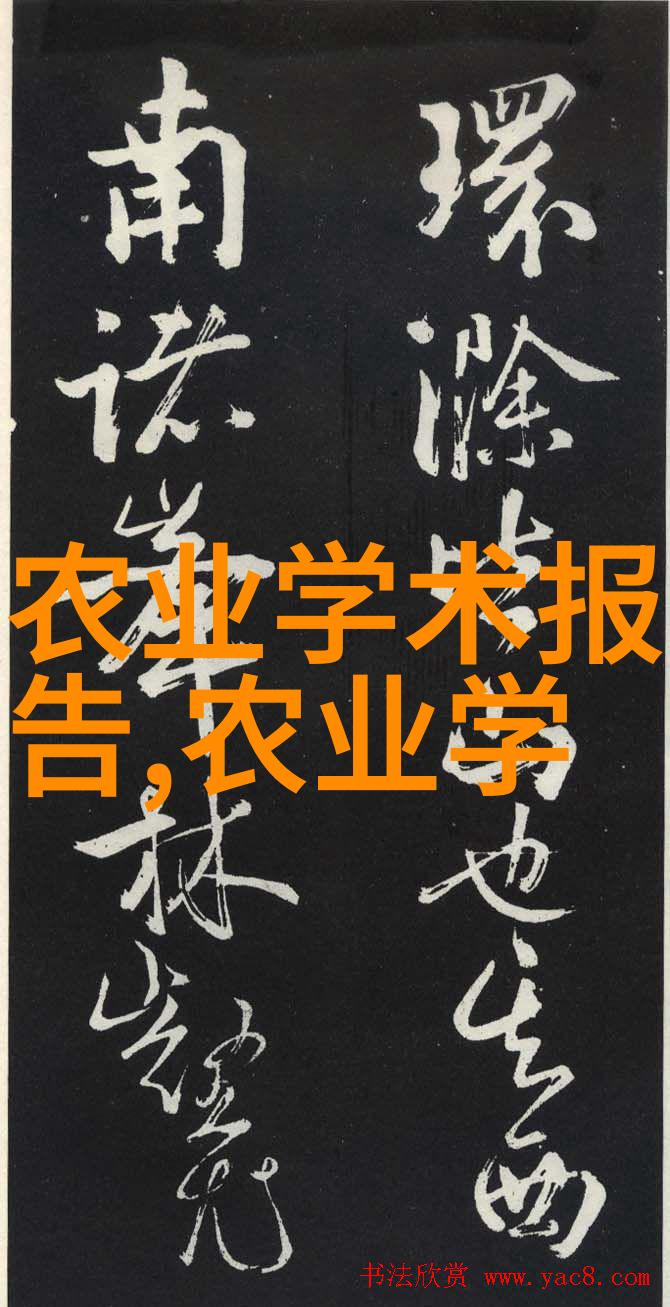 環滁皆山也其西
南諸峯林壑尤
农业学术报
告,农业学
书法欣赏 www.yac8.com